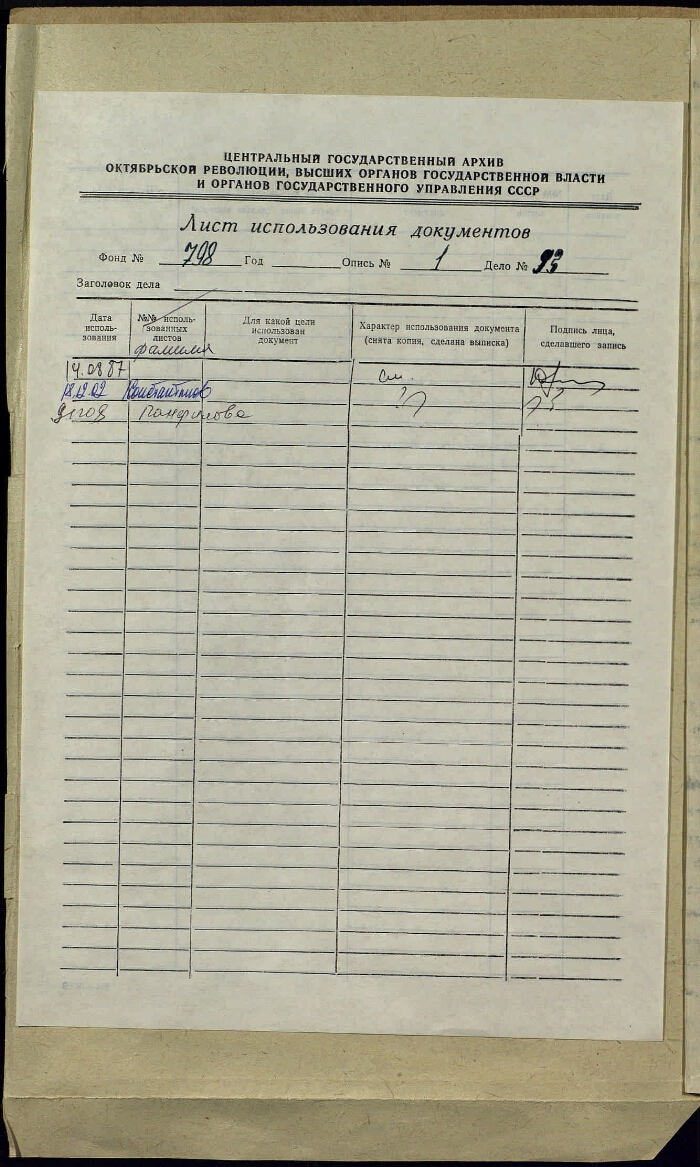 ЦЕНТРАЛЬНЫЙ ГОСУДАРСТВЕННЫЙ АРХИВ
ОКТЯБРЬСКОЙ РЕВОЛЮЦИИ, ВЫСШИХ ОРГАНОВ ГОСУДАРСТВЕННОЙ ВЛАСТИ
И ОРГАНОВ ГОСУДАРСТВЕННОГО УПРАВЛЕНИЯ СССР
Лист использования документов
Фонд № 798 Год Опись № 1 Дело № 93
Заголовок дела
Дата исполь- зования
№№ исполь- зованных листов
фамилия
Для какой цели использован документ
Характер использования документа (снята копия, сделана выписка)
Подпись лица, сделавшего запись
14.08.87 см.
18.12.02 Константинов
Панфилова